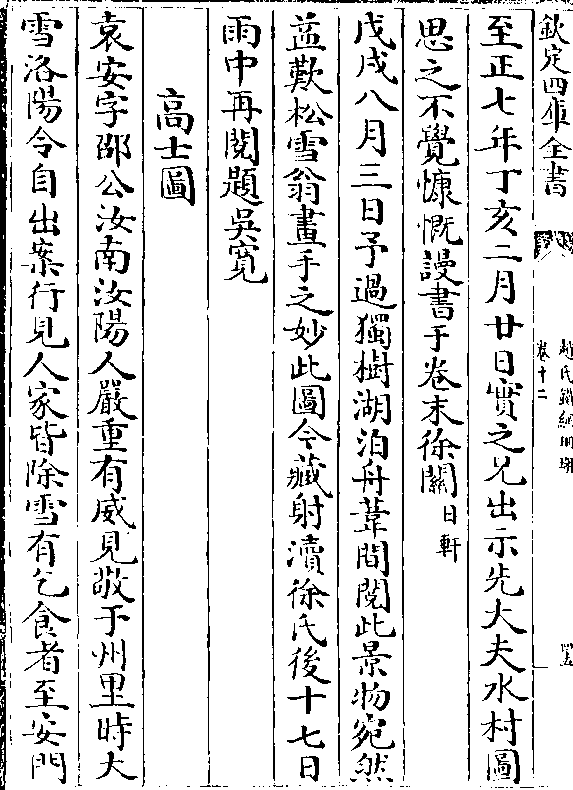 欽定四庫全書
趙氏鐵網珊瑚
卷十二
至正七年丁亥二月廿日實之兄出示先大夫水村圖
思之不覺慷慨謾書于卷末徐關日軒
戊戌八月三日予過獨樹湖泊舟葦間閱此景物宛然
益歎松雪翁畫手之妙此圖今藏射瀆徐氏後十七日
雨中再閱題吳寬
高士圖
袁安字邵公汝南汝陽人嚴重有威見敬于州里時大
雪洛陽令自出案行見人家皆除雪有乞食者至安門